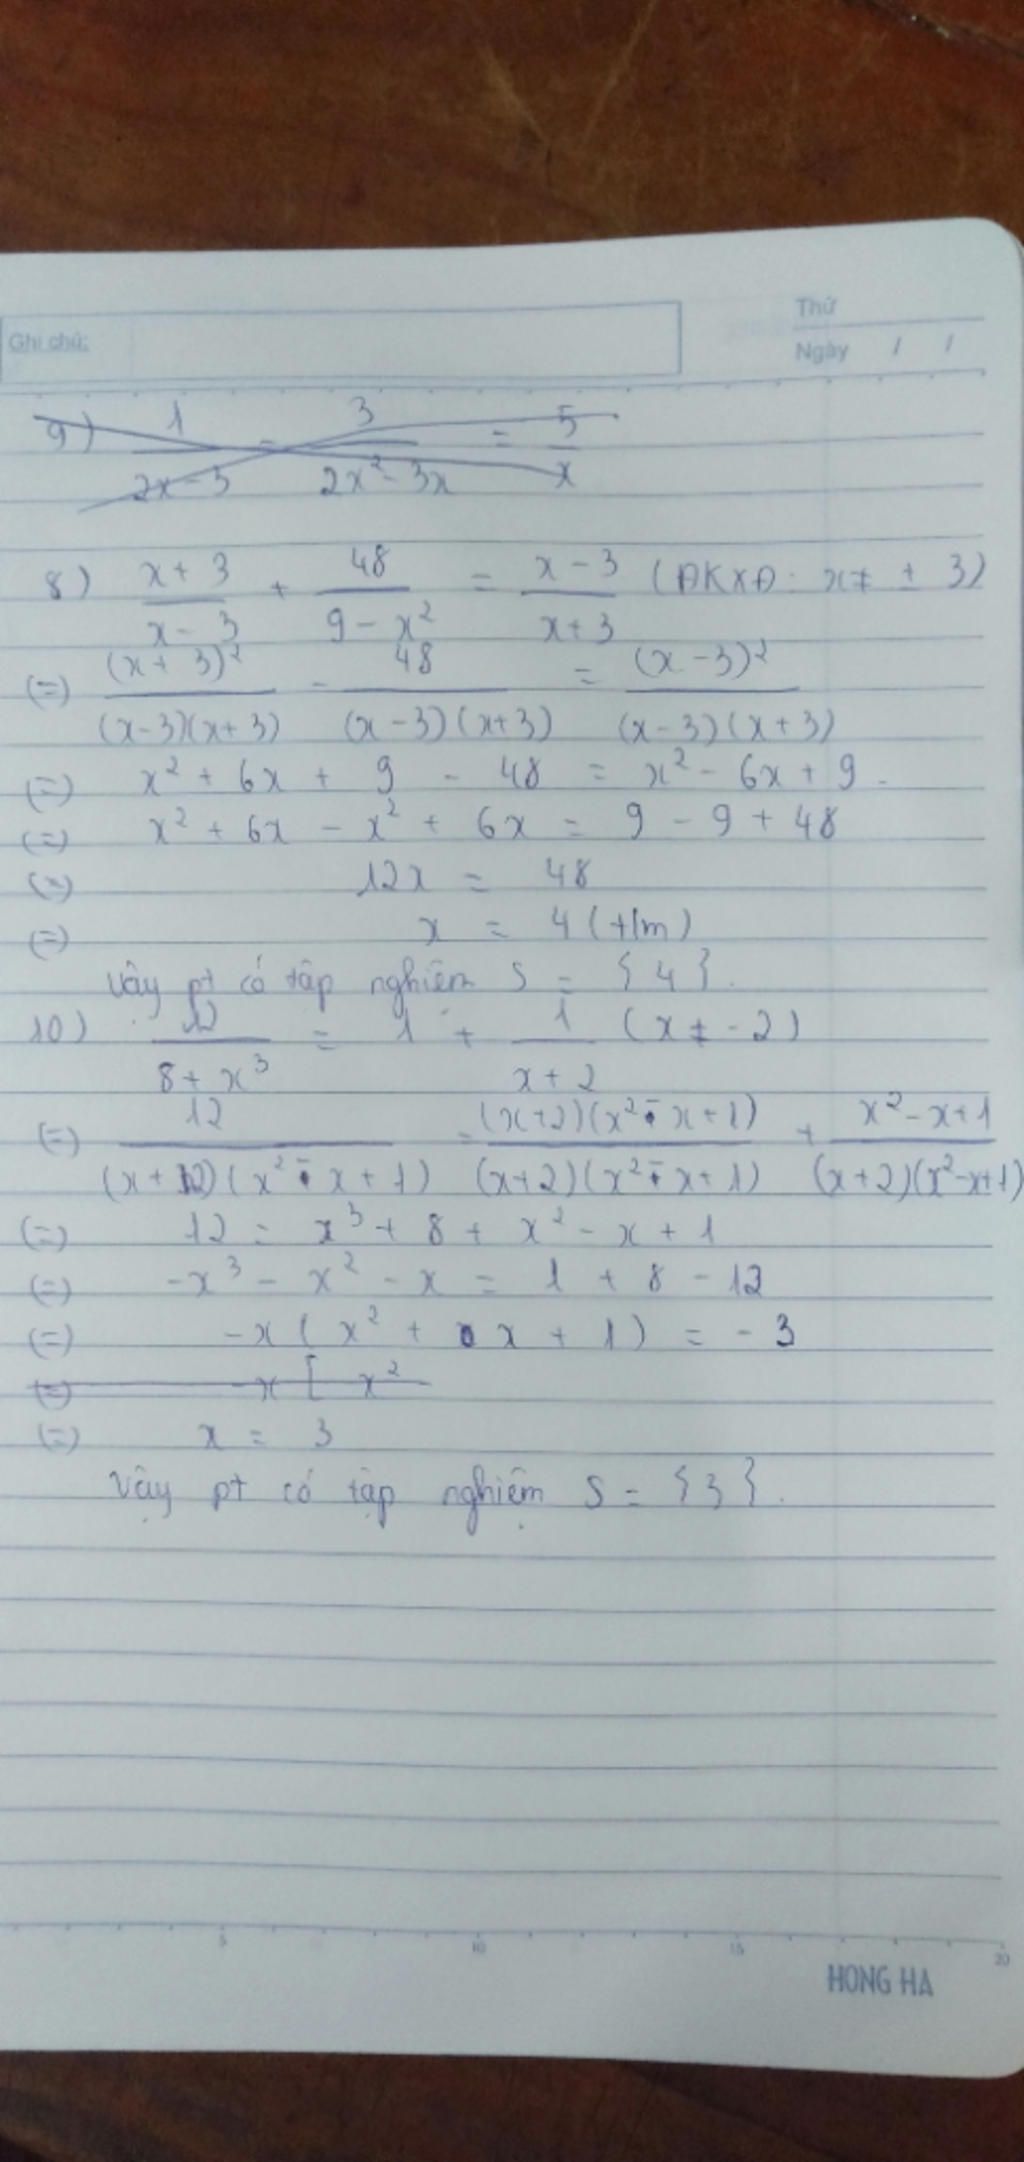 Ghi chú:
Thứ
Ngày / /
9) 1/(2x-3) - 3/(2x²-3x) = 5/x
8) (x+3)/(x-3) + 48/(9-x²) = (x-3)/(x+3) (ĐKXĐ: x≠ ±3)
(=) (x+3)²/((x-3)(x+3)) - 48/((x-3)(x+3)) = (x-3)²/((x-3)(x+3))
(=) x² + 6x + 9 - 48 = x² - 6x + 9.
(=) x² + 6x - x² + 6x = 9 - 9 + 48
(=) 12x = 48
(=) x = 4 (t/m)
Vậy pt có tập nghiệm S = {4}.
10) 12/(8+x³) = 1 + 1/(x+2) (x≠-2)
(=) 12/((x+2)(x²-x+1)) = (x+2)(x²-x+1)/((x+2)(x²-x+1)) + (x²-x+1)/((x+2)(x²-x+1))
(=) 12 = x³ + 8 + x² - x + 1
(=) -x³ - x² - x = 1 + 8 - 12
(=) -x(x² + x + 1) = -3
(=) -x[ x²
(=) x = 3
Vậy pt có tập nghiệm S = {3}.
5 10 15 20
HONG HA